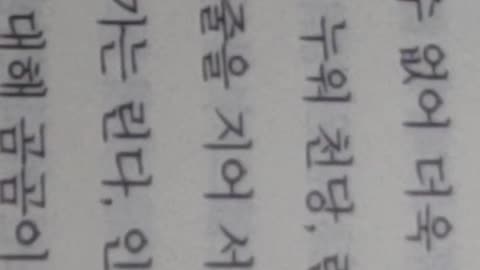 없어 더욱
누워 천당,
줄을 지어 서
가는 린다, 인
대해 곰곰이